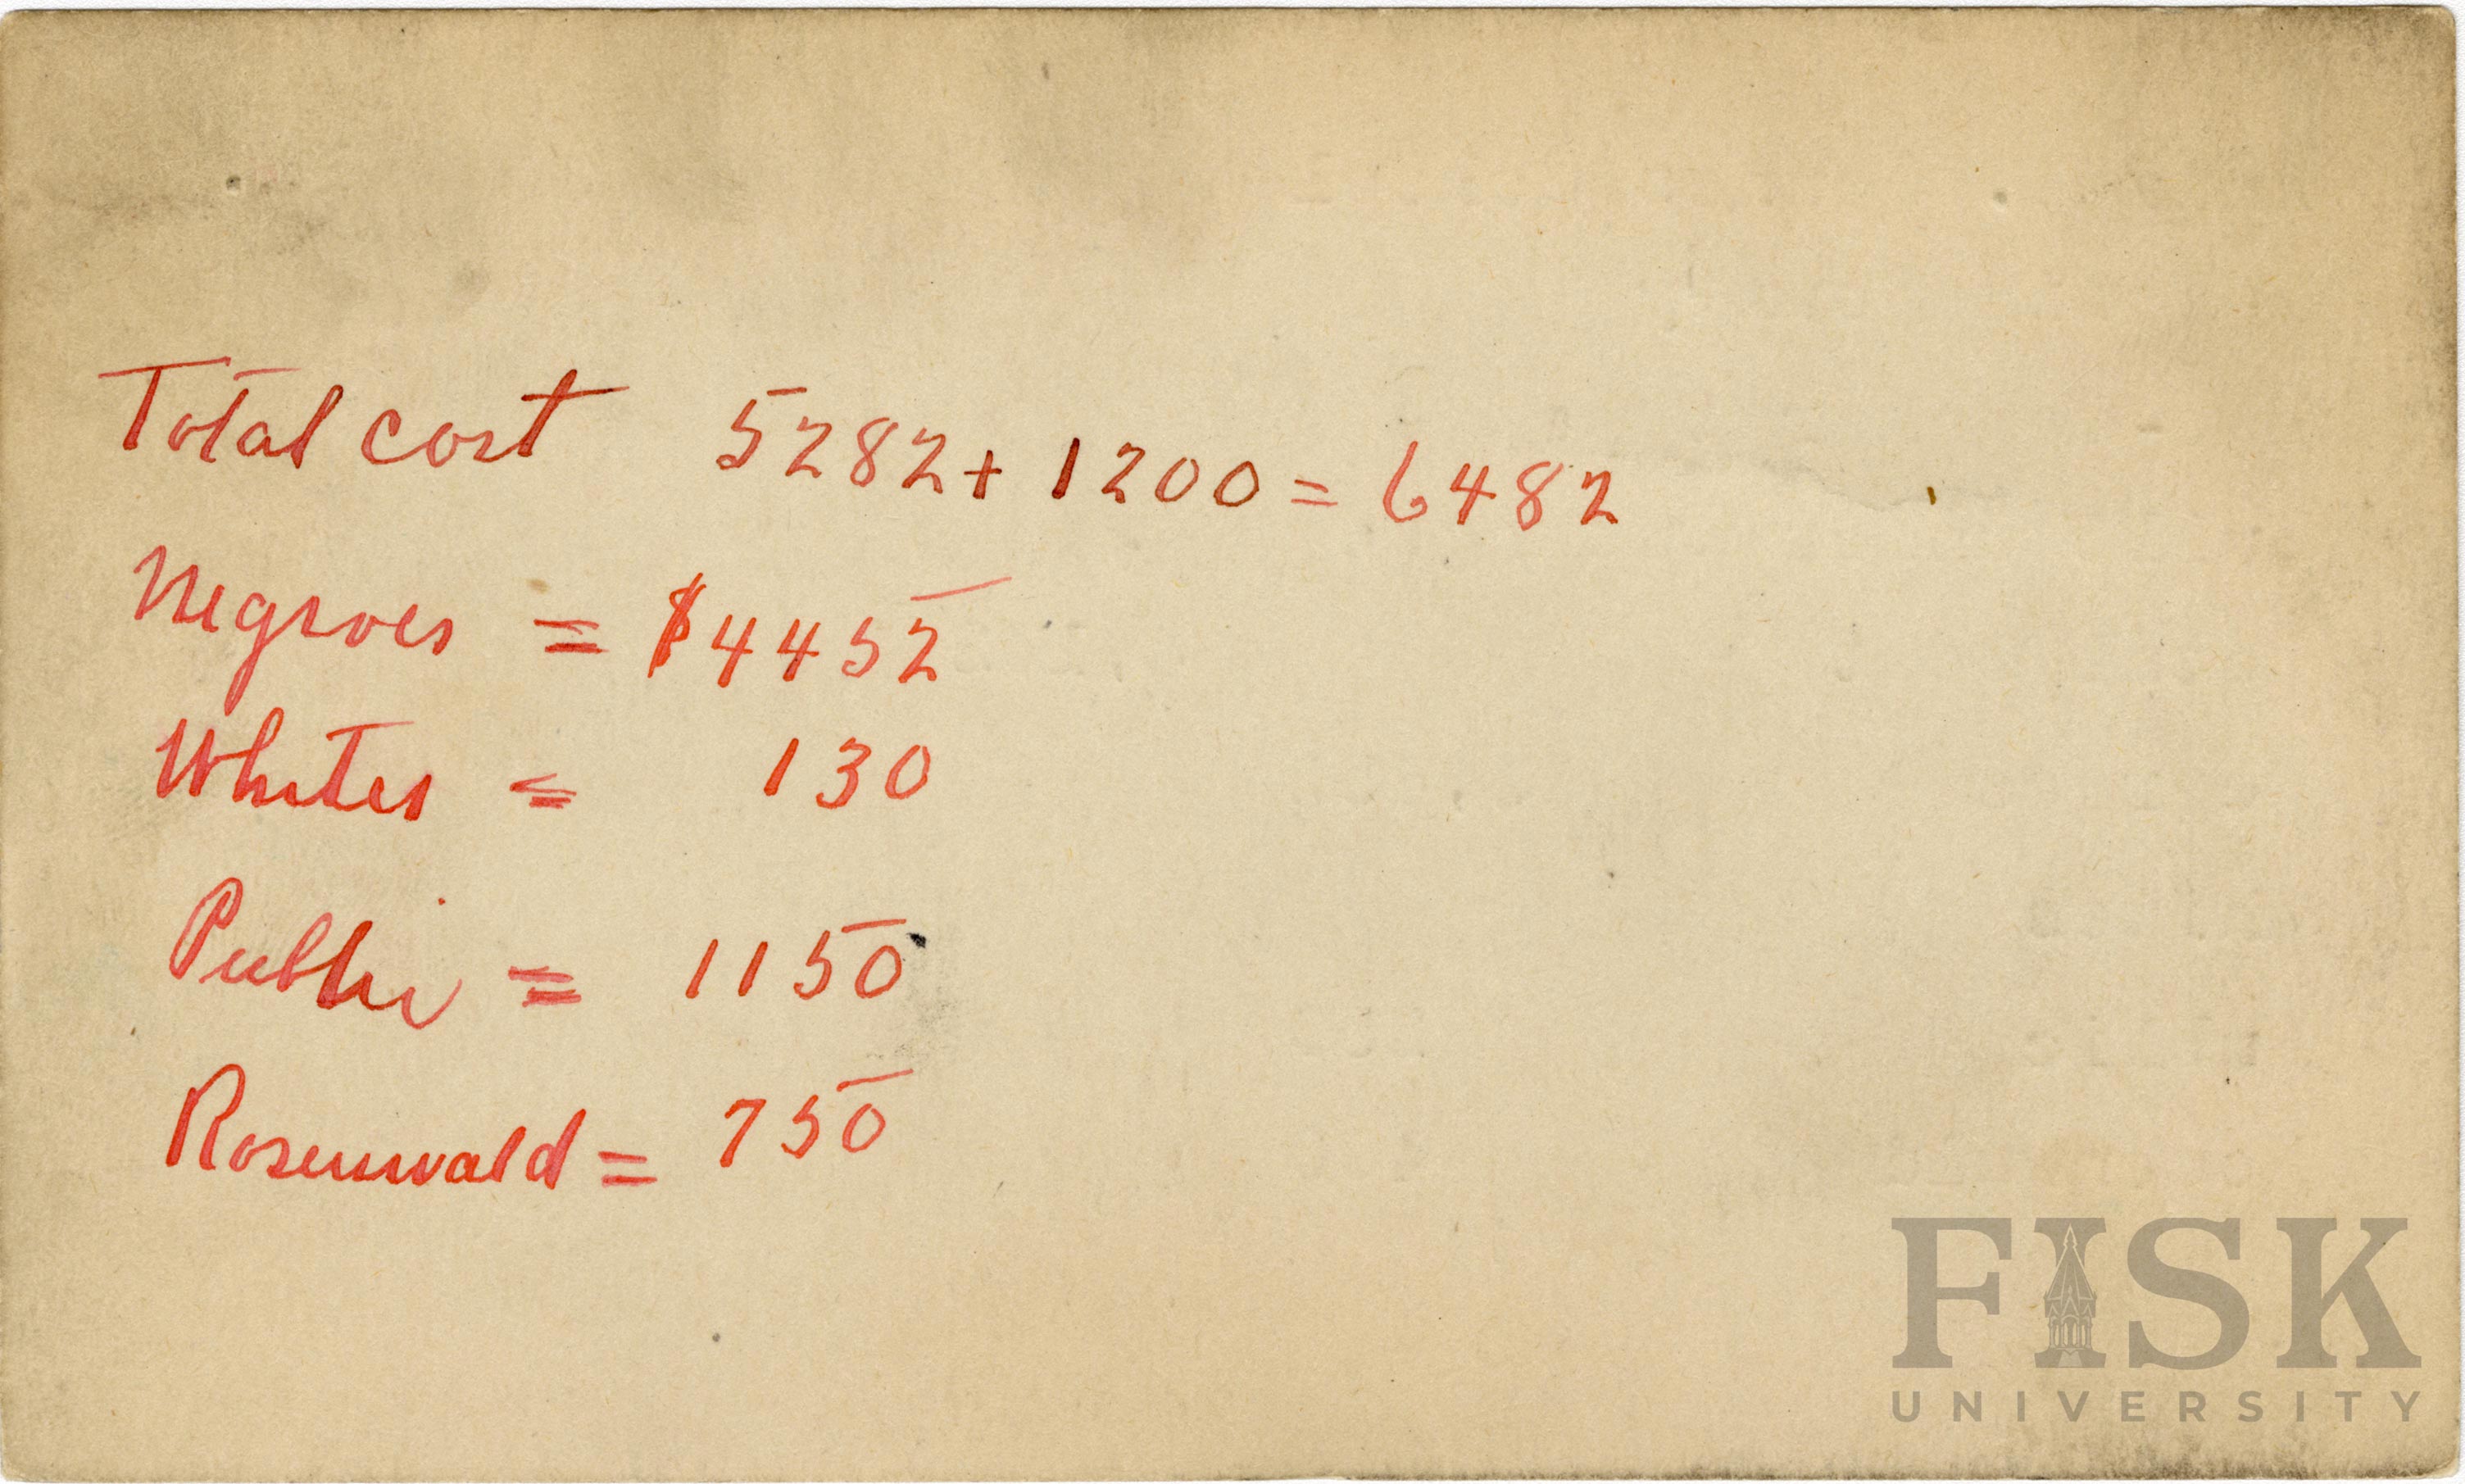 Total cost 5282 + 1200 = 6482
Negroes = $4452
Whites = 130
Public = 1150
Rosenwald = 750
FISK
UNIVERSITY